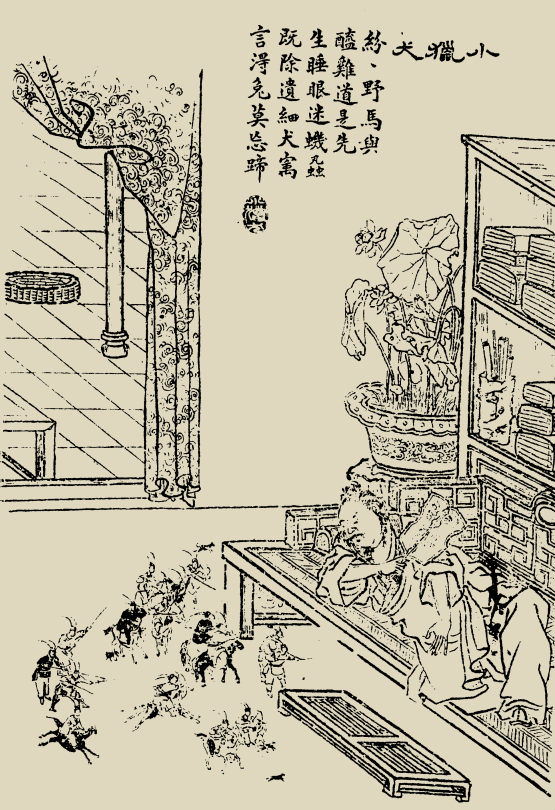 小獵犬
紛、野馬與
醯雞道是先
生睡眼迷蟣虱
既除遺細犬寓
言淂兔莫忘蹄